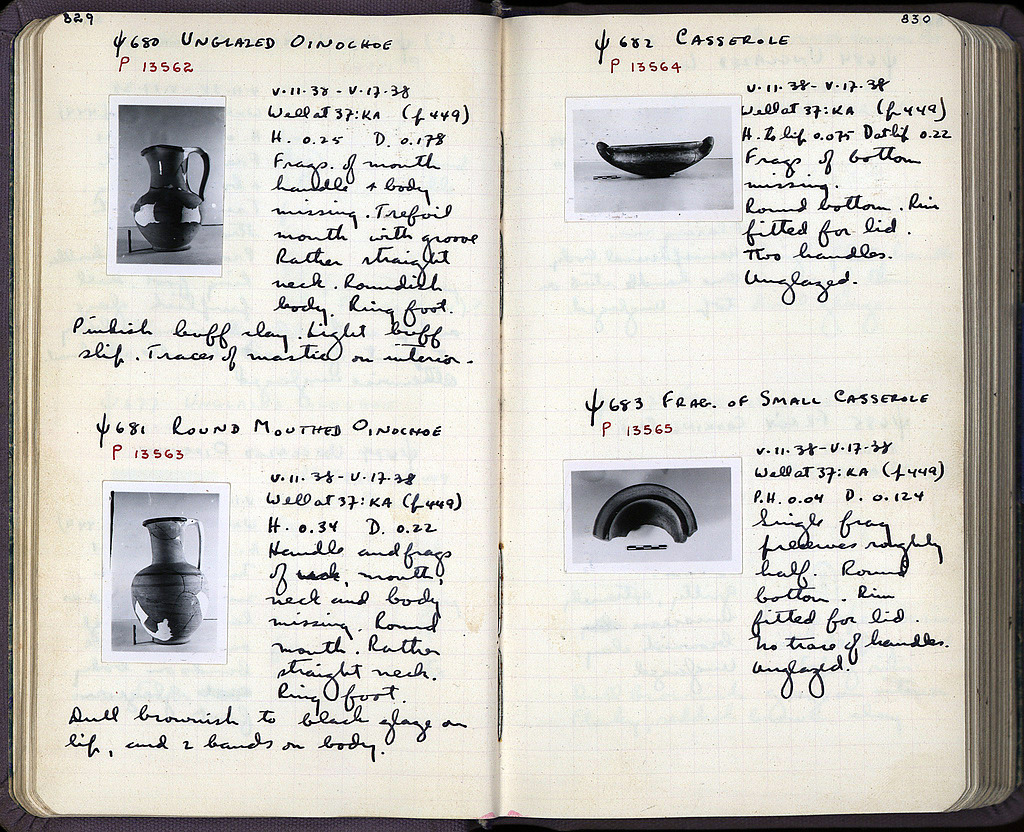 829
ψ680 UNGLAZED OINOCHOE
P 13562
V.11.38 - V.17.38
Well at 37:KA (p 449)
H. 0.25 D. 0.178
Frags. of mouth
handle & body
missing. Trefoil
mouth with groove
Rather straight
neck. Roundish
body. Ring foot.
Pinkish buff clay. Light buff
slip. Traces of mastic on interior.
ψ681 ROUND MOUTHED OINOCHOE
P 13563
V.11.38 - V.17.38
Well at 37:KA (p 449)
H. 0.34 D. 0.22
Handle and frags
of mouth,
neck and body
missing. Round
mouth. Rather
straight neck.
Ring foot.
Dull brownish to black glaze on
lip, and 2 bands on body.
830
ψ682 CASSEROLE
P 13564
V.11.38 - V.17.38
Well at 37:KA (p 449)
H. to lip 0.075 D at lip 0.22
Frags of bottom
missing.
Round bottom. Rim
fitted for lid.
Two handles.
Unglazed.
ψ683 FRAG. OF SMALL CASSEROLE
P 13565
V.11.38 - V.17.38
Well at 37:KA (p 449)
P.H. 0.04 D. 0.124
Single frag
preserves roughly
half. Round
bottom. Rim
fitted for lid.
No trace of handles.
Unglazed.